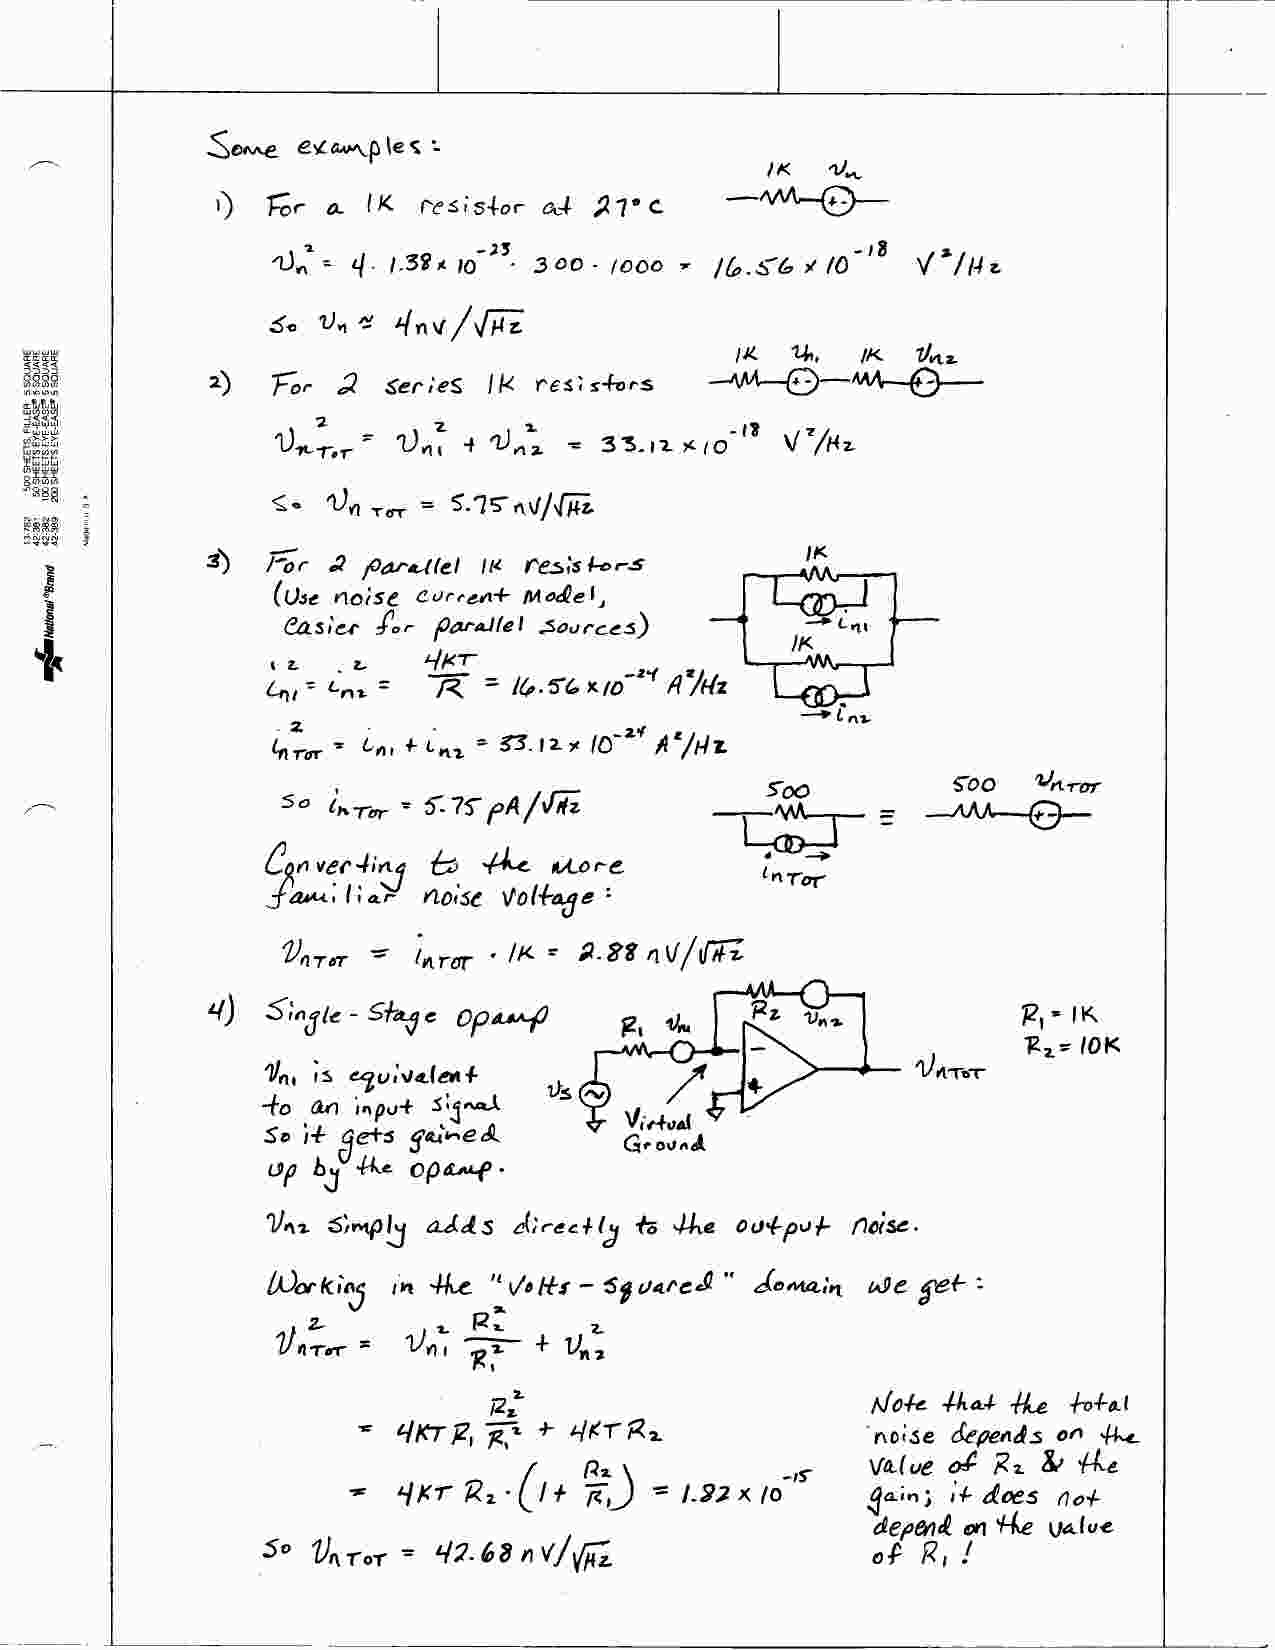 Some examples:
1) For a 1K resistor at 27°C
1K vn
vn² = 4 · 1.38 x 10⁻²³ · 300 · 1000 = 16.56 x 10⁻¹⁸ V²/Hz
So vn ≈ 4nV/√Hz
2) For 2 series 1K resistors
1K vn1 1K vn2
+ - + -
vnTOT² = vn1² + vn2² = 33.12 x 10⁻¹⁸ V²/Hz
So vnTOT = 5.75 nV/√Hz
3) For 2 parallel 1K resistors
(Use noise current model,
easier for parallel sources)
1K
in1
1K
in2
in1² = in2² = 4KT/R = 16.56 x 10⁻²⁴ A²/Hz
inTOT² = in1 + in2 = 33.12 x 10⁻²⁴ A²/Hz
So inTOT = 5.75 pA/√Hz
500
inTOT
≡
500 vnTOT
+ -
Converting to the more
familiar noise voltage:
vnTOT = inTOT · 1K = 2.88 nV/√Hz
4) Single-Stage opamp
R1 vn1 R2 vn2
R1 = 1K
R2 = 10K
vs
- +
vnTOT
Virtual
Ground
vn1 is equivalent
to an input signal
so it gets gained
up by the opamp.
vn2 simply adds directly to the output noise.
Working in the "Volts-squared" domain we get:
vnTOT² = vn1² R2²/R1² + vn2²
= 4KT R1 R2²/R1² + 4KT R2
= 4KT R2 · (1 + R2/R1) = 1.82 x 10⁻¹⁵
So vnTOT = 42.68 nV/√Hz
Note that the total
noise depends on the
value of R2 & the
gain; it does not
depend on the value
of R1!
13-782 500 SHEETS, FILLER 5 SQUARE
42-381 50 SHEETS EYE-EASE® 5 SQUARE
42-382 100 SHEETS EYE-EASE® 5 SQUARE
42-389 200 SHEETS EYE-EASE® 5 SQUARE
National ®Brand